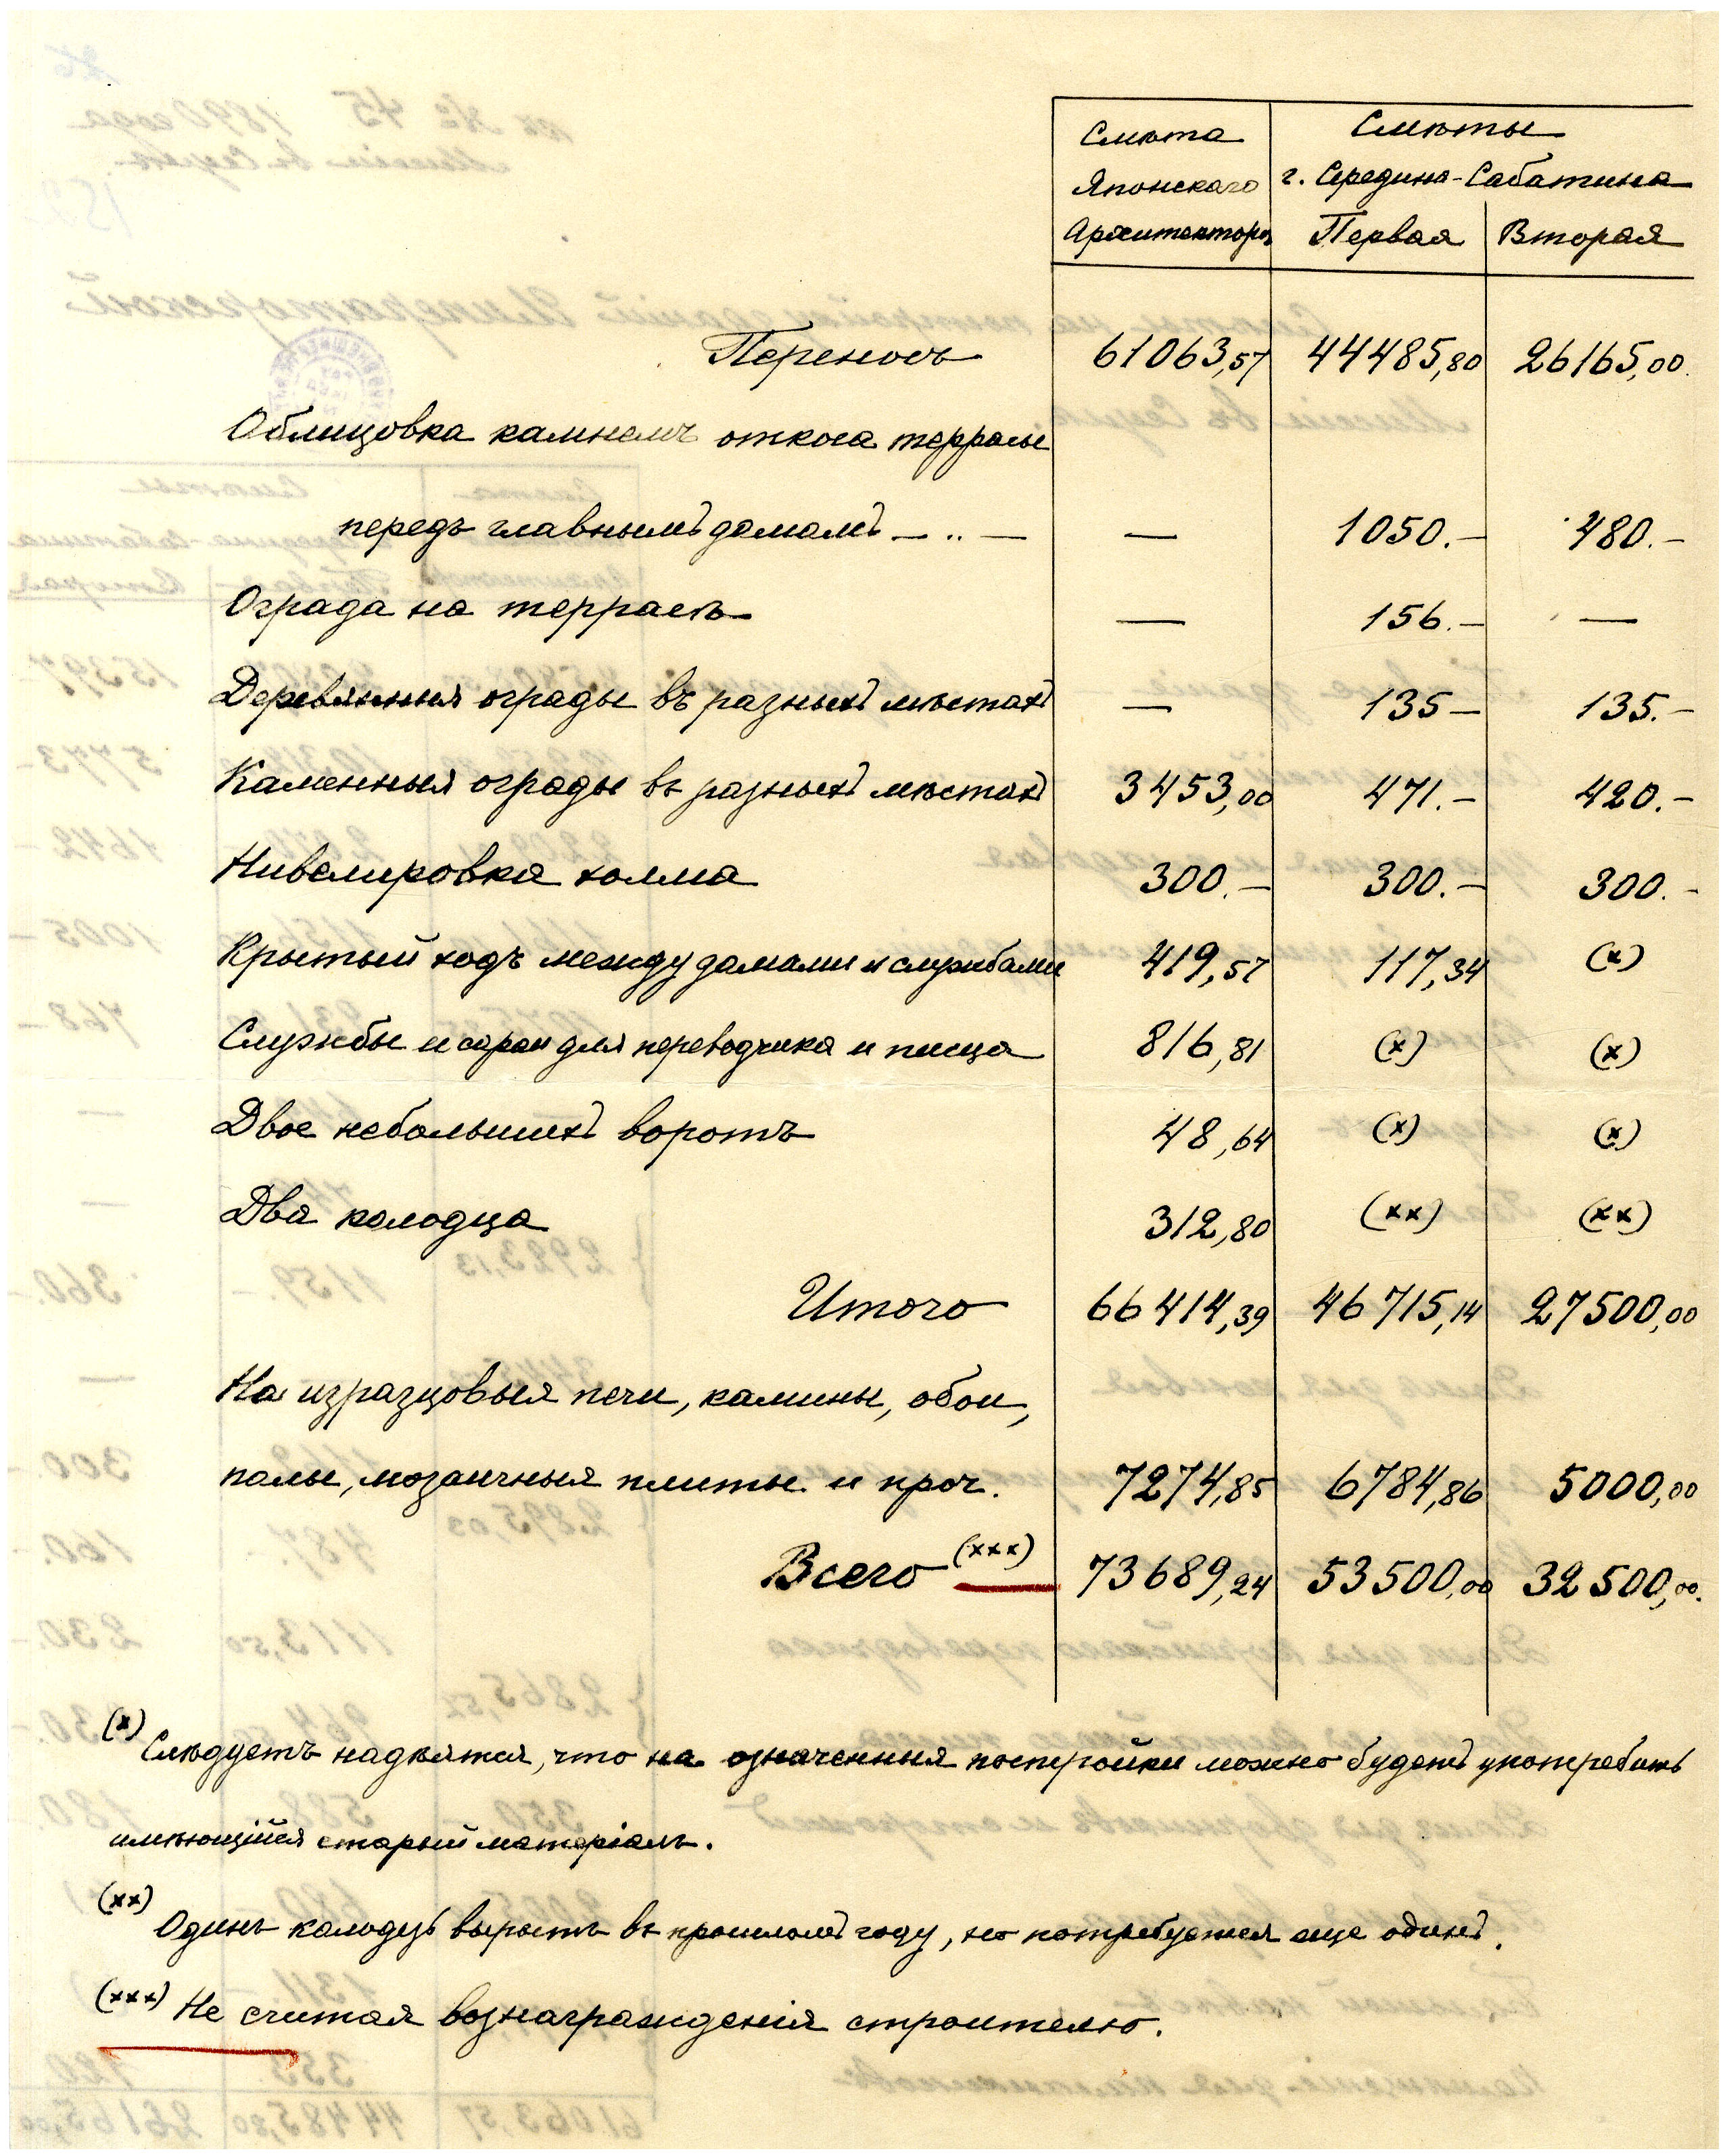 Смѣта
Японскаго
Архитектора
Смѣты
г. Середина-Сабатина
Первая Вторая
Переносъ 61063,57 44485,80 26165,00.
Облицовка камнемъ откоса террасы
передъ главнымъ домомъ — .. — — 1050.— 480.—
Ограда на террасѣ — 156.— —
Деревянныя ограды въ разныхъ мѣстахъ — 135— 135.—
Каменныя ограды въ разныхъ мѣстахъ 3453,00 471.— 420.—
Нивелировка холма 300.— 300.— 300.-
Крытый ходъ между домами и службами 419,57 117,34 (x)
Службы и сараи для переводчика и писца 816,81 (x) (x)
Двое небольшихъ воротъ 48,64 (x) (x)
Два колодца 312,80 (xx) (xx)
Итого 66414,39 46715,14 27500,00
На изразцовыя печи, камины, обои,
полы, мозаичныя плиты и проч. 7274,85 6784,86 5000,00
Всего (xxx) 73689,24 53500,00 32500,00.
(x) Слѣдуетъ надѣятся, что на означенныя постройки можно будетъ употребить
имѣющійся старый матеріалъ.
(xx) Одинъ колодезь вырытъ въ прошломъ году, но потребуется еще одинъ.
(xxx) Не считая вознагражденія строителю.